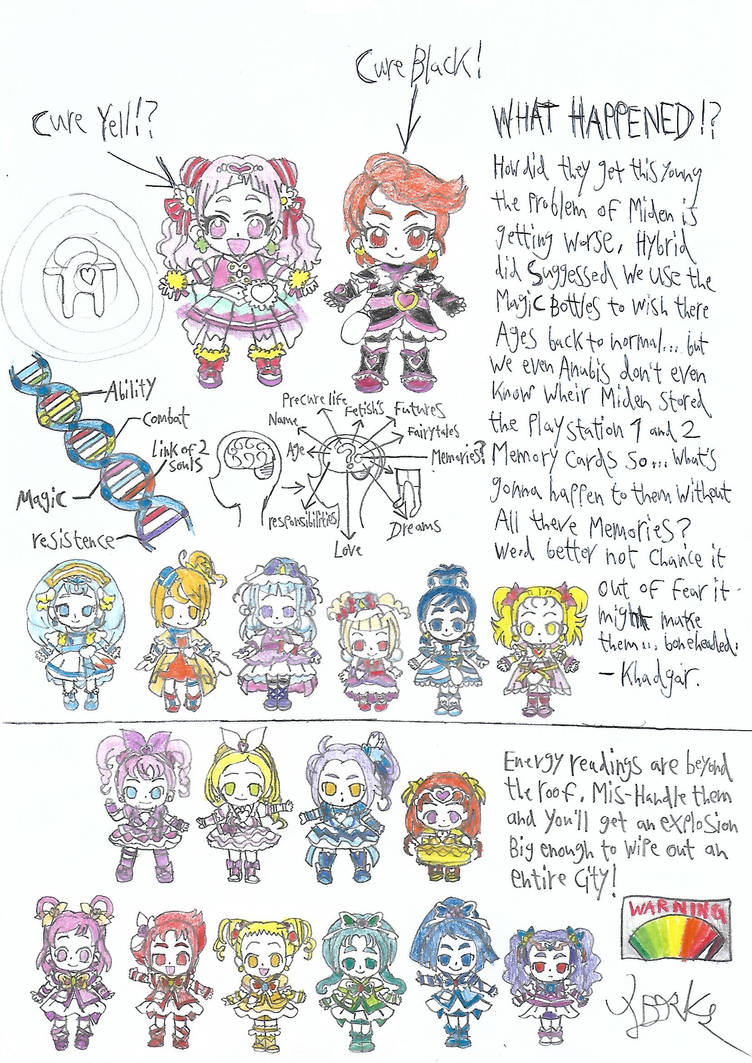 Cure Black!
Cure Yell!?
WHAT HAPPENED!?
How did they get this young
the problem of Miden is
getting worse, Hybrid
did Suggessed we use the
Magic Bottles to wish there
Ages back to normal... but
we even Anubis don't even
know wheir Miden stored
the Playstation 1 and 2
Memory cards so... what's
gonna happen to them without
All there Memories?
We'd better not chance it
out of fear it
might make
them... boneheaded.
- Khadgar.
Ability
Combat
Link of 2
souls
Magic
resistence
Precure life
Fetish's
Futures
Name
Fairytales
Age
Memories?
responsibilities
Love
Dreams
Energy readings are beyond
the roof, Mis-Handle them
and you'll get an explosion
Big enough to wipe out an
entire city!
WARNING